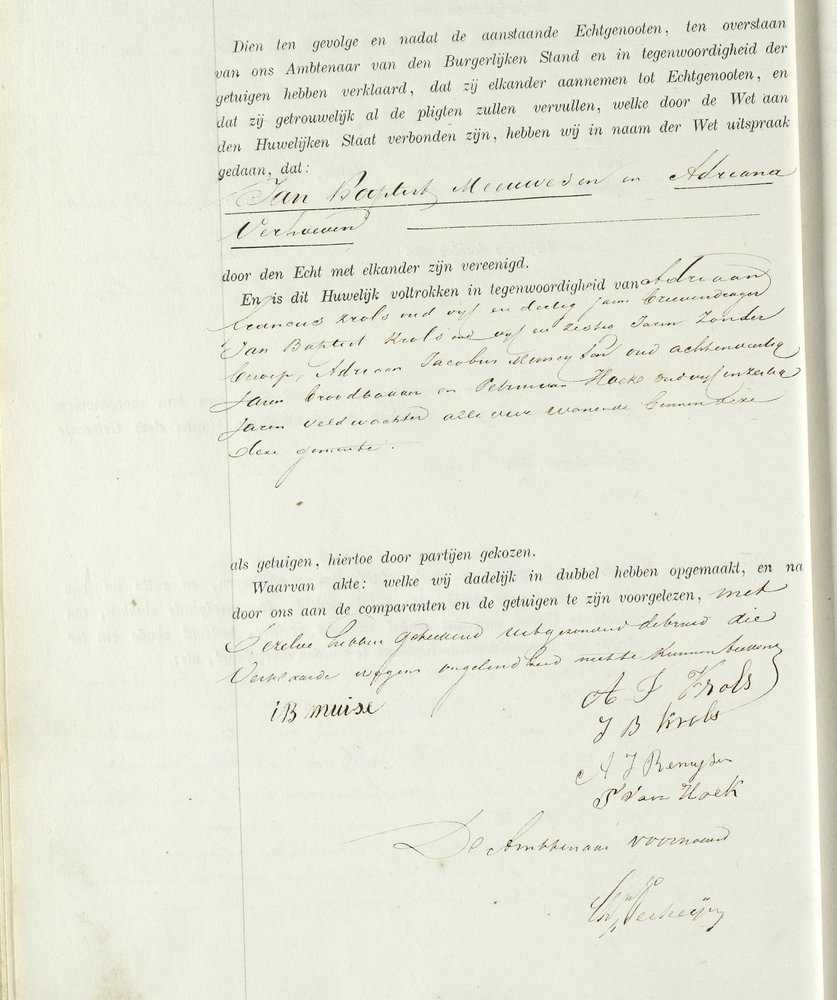 Dien ten gevolge en nadat de aanstaande Echtgenooten, ten overstaan
van ons Ambtenaar van den Burgerlijken Stand en in tegenwoordigheid der
getuigen hebben verklaard, dat zij elkander aannemen tot Echtgenooten, en
dat zij getrouwelijk al de pligten zullen vervullen, welke door de Wet aan
den Huwelijken Staat verbonden zijn, hebben wij in naam der Wet uitspraak
gedaan, dat:
Jan Baptist Meeuwesen en Adriana
Verhoeven
door den Echt met elkander zijn vereenigd.
En is dit Huwelijk voltrokken in tegenwoordigheid van Adriaan
Francus Krols oud vyf en dertig jaren
Jan Baptist Krols oud vyf en zestig Jaren Zonder
beroep, Adriaan Jacobus oud achtenveertig
Jaren broodbakker en Petrus van Hoek oud vyf enzestig
Jaren veldwachter alle vier wonende binnen deze
deze gemeente.
als getuigen, hiertoe door partijen gekozen.
Waarvan akte: welke wij dadelijk in dubbel hebben opgemaakt, en na
door ons aan de comparanten en de getuigen te zijn voorgelezen, met
dezelve hebben geteekend uitgezonderd debruid die
Verklaarde wegens ongeleerdheid niet te kunnen teekenen
A F Krols
iB muise
J B Krols
A J Remysen
P Van Hoek
De Ambtenaar voornoemd
Verheijen